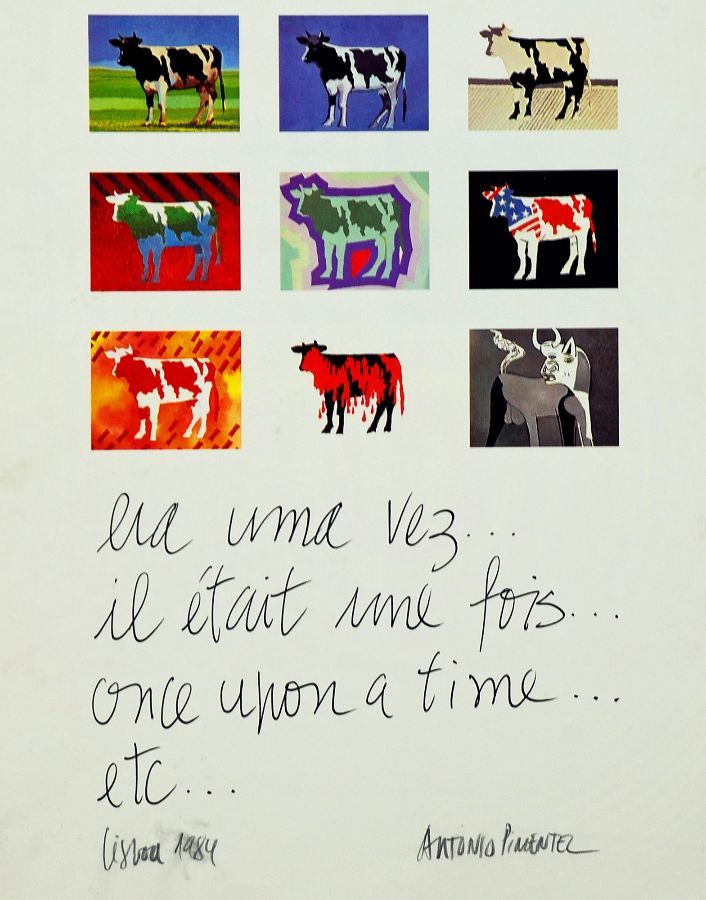 era uma vez...
il était une fois...
once upon a time...
etc...
Lisboa 1984
António Pimentel